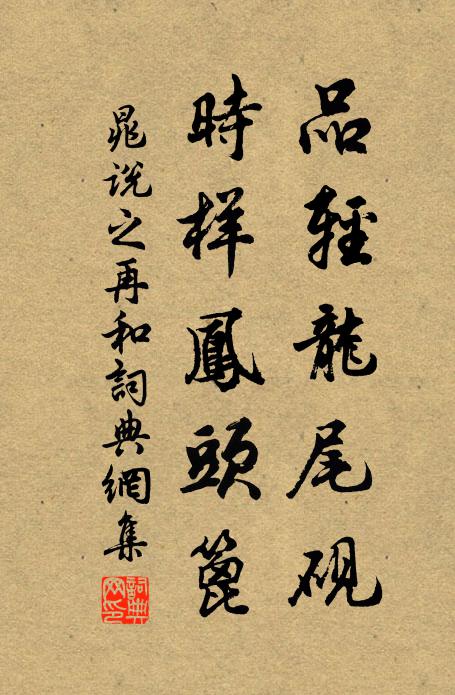 品輕龍尾硯
時样鳳頭篦
晁说之再和詞典網集
詞典网印